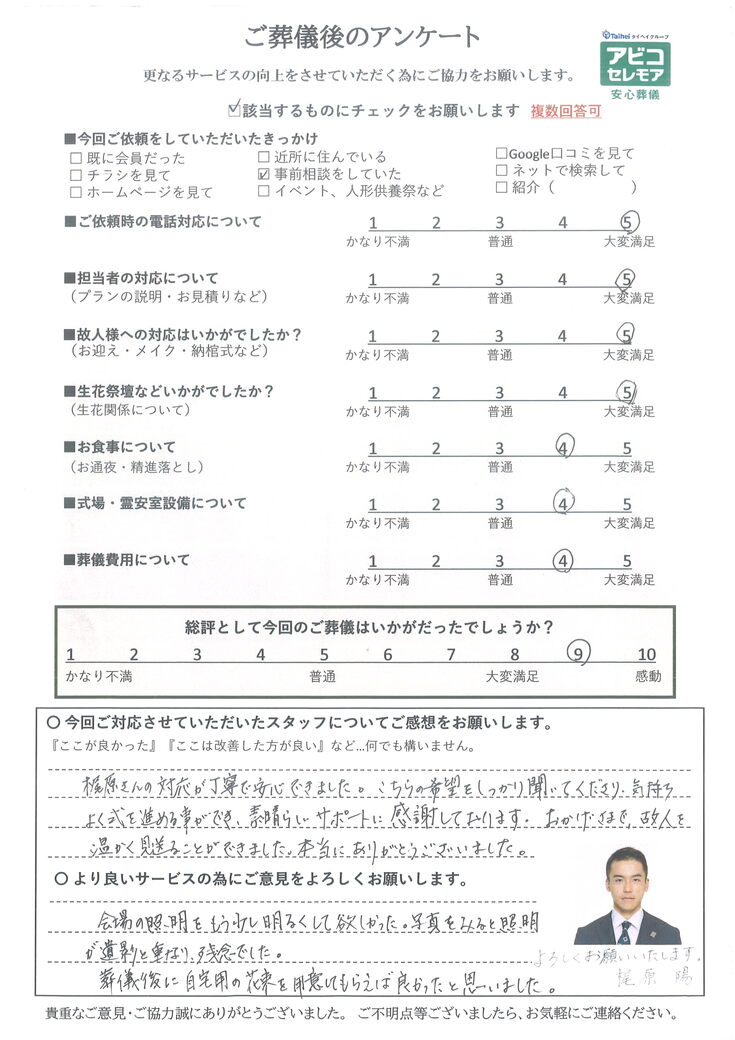 ご葬儀後のアンケート
Taihei タイヘイグループ
アビコ
セレモア
安心葬儀
更なるサービスの向上をさせていただく為にご協力をお願いします。
☑該当するものにチェックをお願いします 複数回答可
■今回ご依頼をしていただいたきっかけ
□ 既に会員だった □ 近所に住んでいる □Google口コミを見て
□ チラシを見て ☑ 事前相談をしていた □ ネットで検索して
□ ホームページを見て □ イベント、人形供養祭など □ 紹介（ ）
■ご依頼時の電話対応について 1 2 3 4 5
かなり不満 普通 大変満足
■担当者の対応について 1 2 3 4 5
（プランの説明・お見積りなど） かなり不満 普通 大変満足
■故人様への対応はいかがでしたか？ 1 2 3 4 5
（お迎え・メイク・納棺式など） かなり不満 普通 大変満足
■生花祭壇などいかがでしたか？ 1 2 3 4 5
（生花関係について） かなり不満 普通 大変満足
■お食事について 1 2 3 4 5
（お通夜・精進落とし） かなり不満 普通 大変満足
■式場・霊安室設備について 1 2 3 4 5
かなり不満 普通 大変満足
■葬儀費用について 1 2 3 4 5
かなり不満 普通 大変満足
総評として今回のご葬儀はいかがだったでしょうか？
1 2 3 4 5 6 7 8 9 10
かなり不満 普通 大変満足 感動
〇 今回ご対応させていただいたスタッフについてご感想をお願いします。
『ここが良かった』『ここは改善した方が良い』など…何でも構いません。
梶原さんの対応が丁寧で安心できました。こちらの希望をしっかり聞いてくださり、気持ち
よく式を進める事ができ、素晴らしいサポートに感謝しております。おかげさまで、故人を
温かく見送ることができました。本当にありがとうございました。
〇 より良いサービスの為にご意見をよろしくお願いします。
会場の照明をもう少し明るくして欲しかった。写真をみると照明
が遺影と重なり、残念でした。
葬儀後に自宅用の花束を用意してもらえば良かったと思いました。
よろしくお願いいたします。
梶原 陽
貴重なご意見・ご協力誠にありがとうございました。 ご不明点等ございましたら、お気軽にご連絡ください。